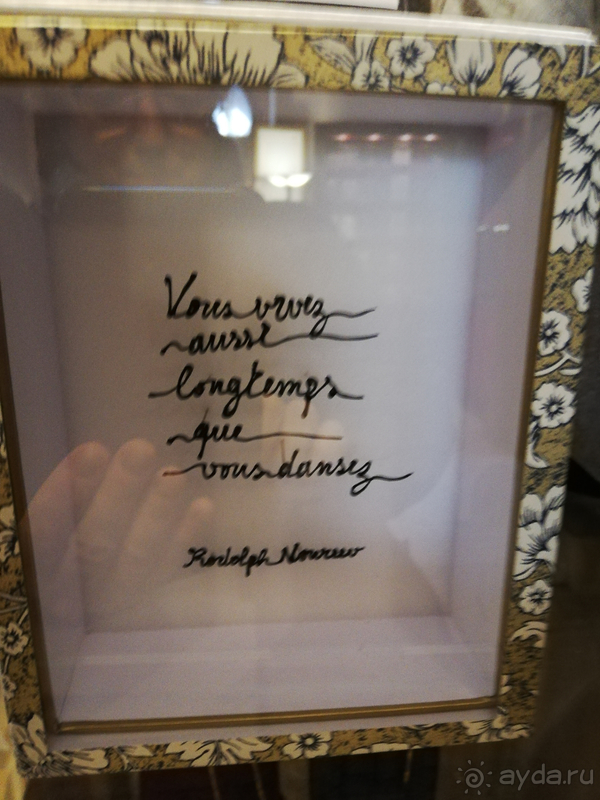 Vous vivez
aussi
longtemps
que
vous dansez
Rodolph Noureev
ayda.ru